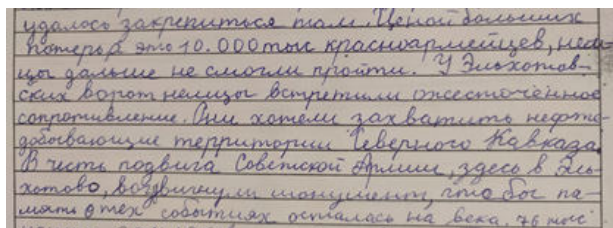 удалось закрепиться там. Ценой больших
потерь, а это 10.000 тыс красноармейцев, нем-
цы дальше не смогли пройти. У Эльхотов-
ских ворот немцы встретили ожесточённое
сопротивление. Они хотели захватить нефте-
добывающие территории Северного Кавказа.
В честь подвига Советской Армии, здесь в Эль-
хотово, воздвигнули монумент, что бы па-
мять о тех событиях осталась на века. 76 тыс